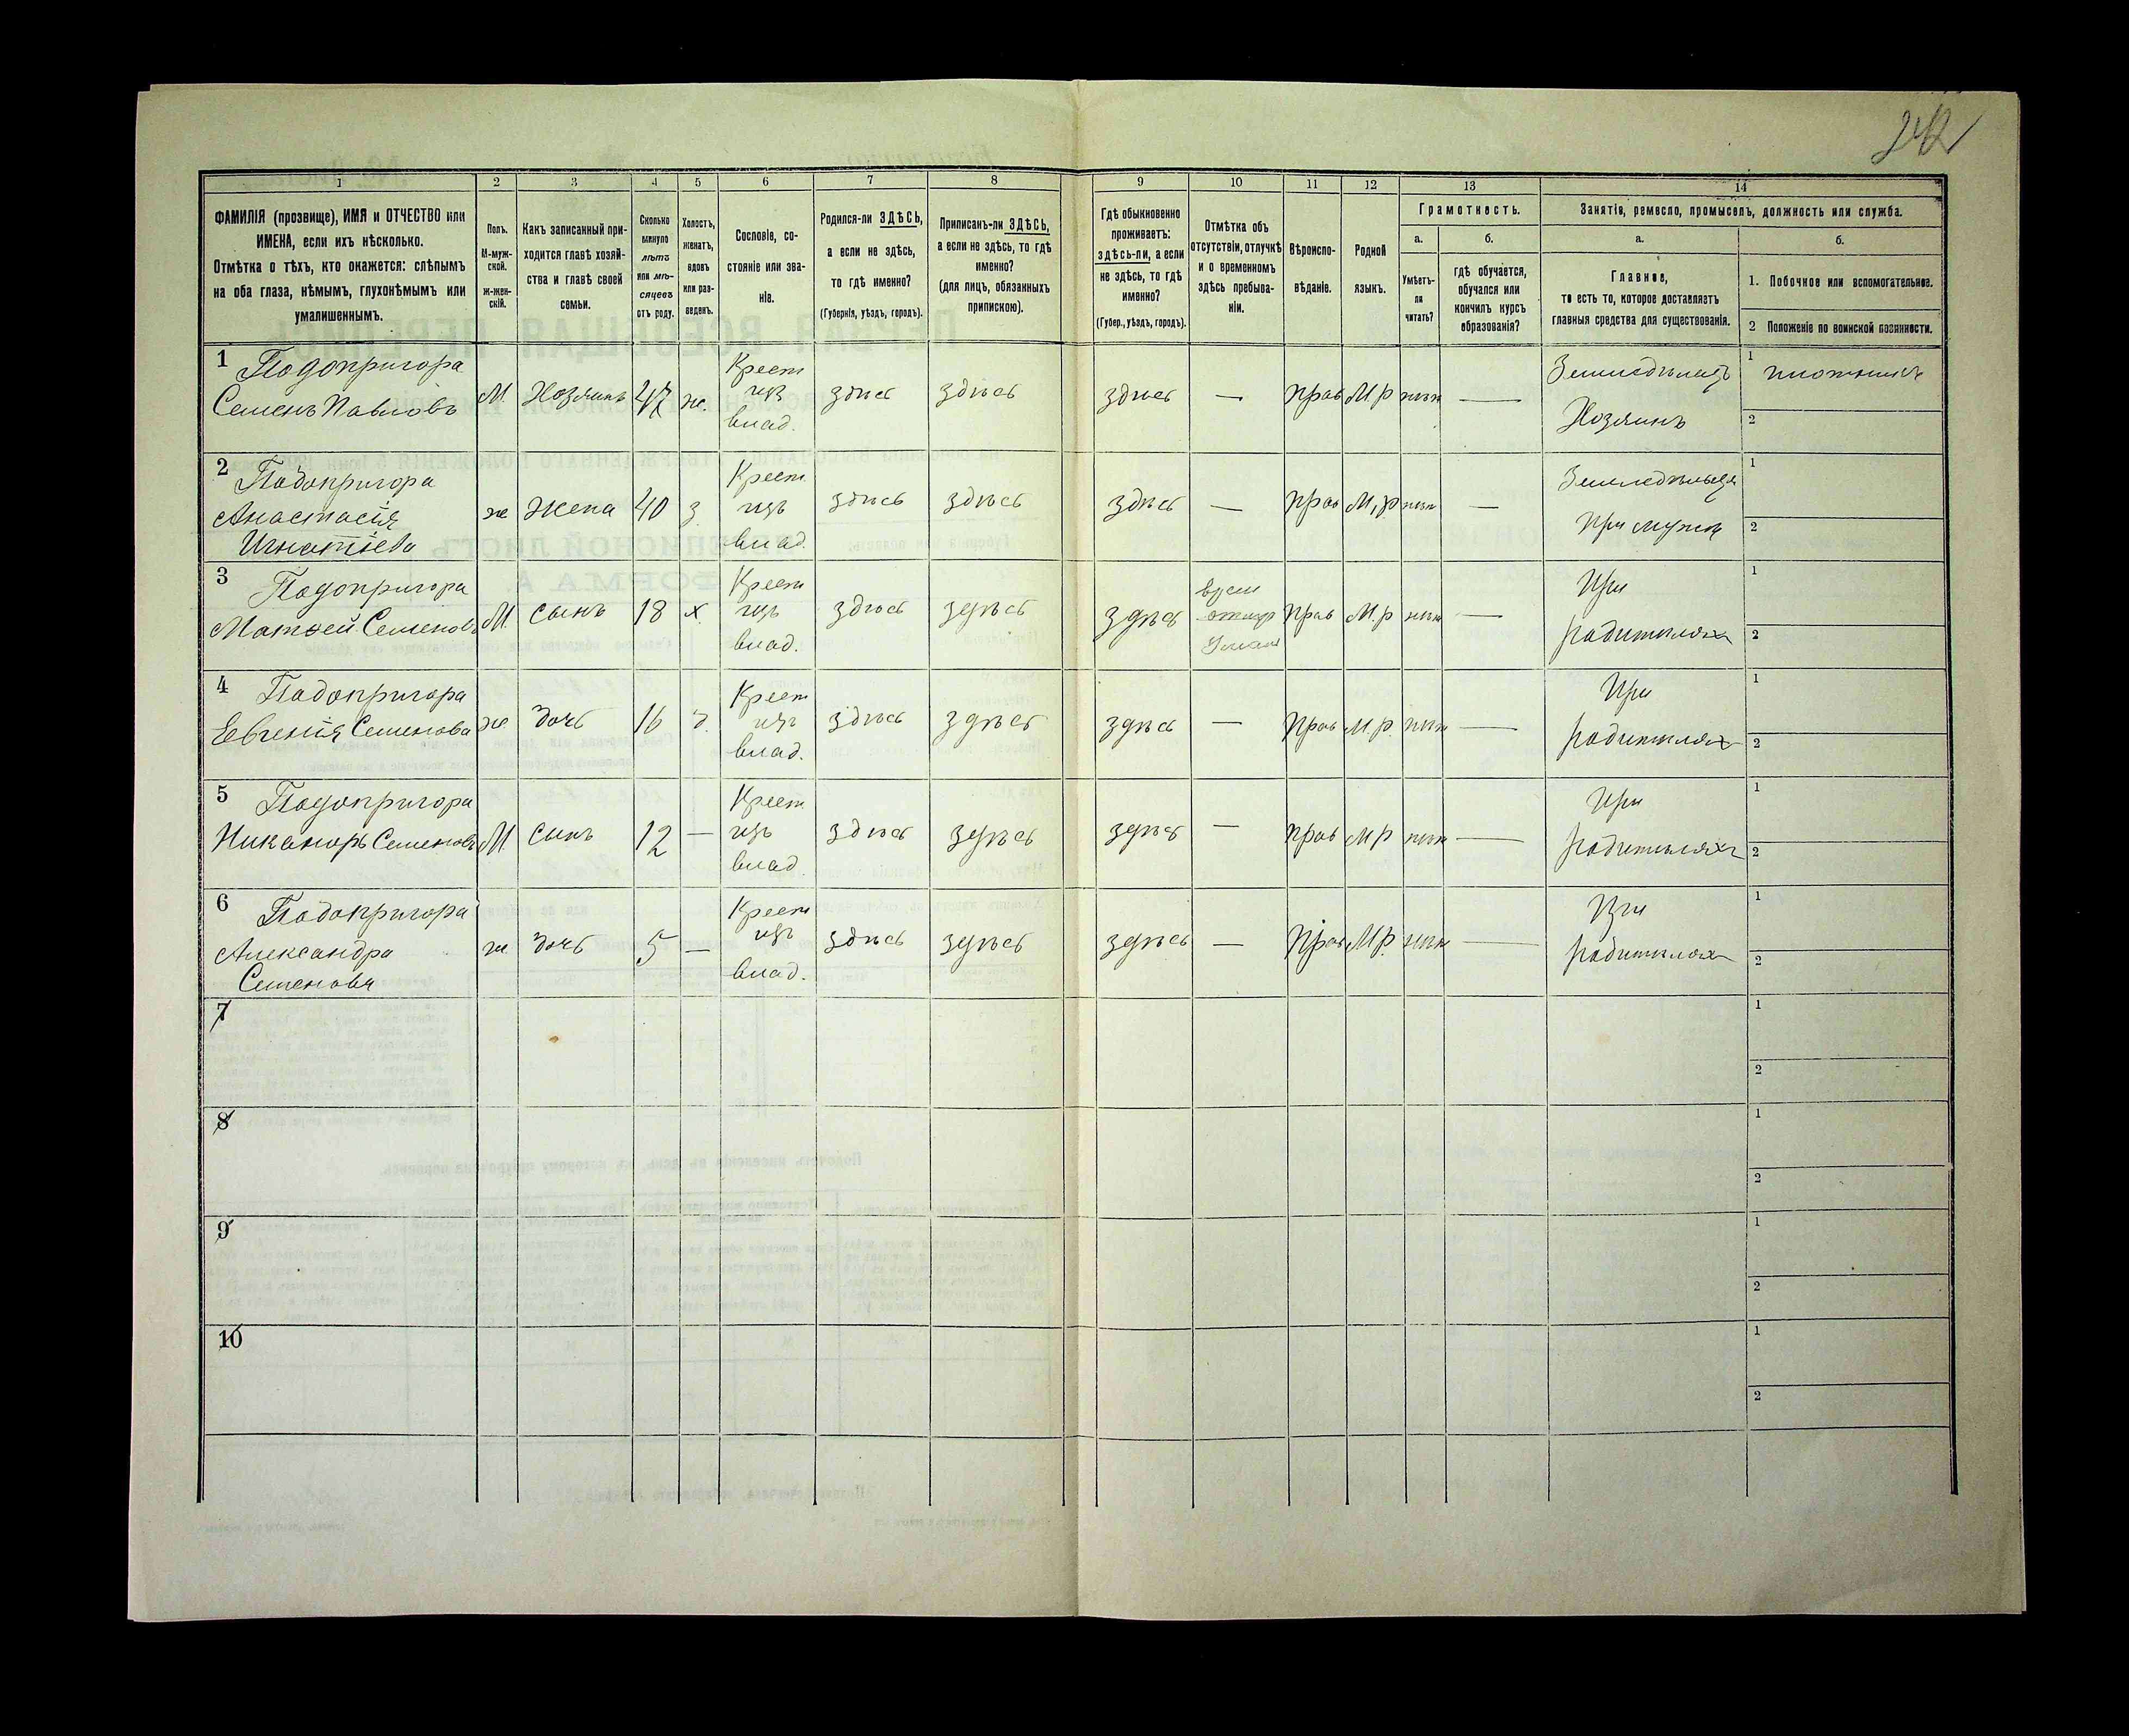 1 2 3 4 5 6 7 8 9 10 11 12 13 14
ФАМИЛІЯ (прозвище), ИМЯ и ОТЧЕСТВО или
ИМЕНА, если ихъ нѣсколько.
Отмѣтка о тѣхъ, кто окажется: слѣпымъ
на оба глаза, нѣмымъ, глухонѣмымъ или
умалишеннымъ.
Полъ.
М-муж-
ской.
ж-жен-
скій.
Какъ записанный при-
ходится главѣ хозяй-
ства и главѣ своей
семьи.
Сколько
минуло
лѣтъ
или мѣ-
сяцевъ
отъ роду.
Холостъ,
женатъ,
вдовъ
или раз-
веденъ.
Сословіе, со-
стояніе или зва-
ніе.
Родился-ли ЗДѢСЬ,
а если не здѣсь,
то гдѣ именно?
(Губернія, уѣздъ, городъ).
Приписанъ-ли ЗДѢСЬ,
а если не здѣсь, то гдѣ
именно?
(для лицъ, обязанныхъ
припискою).
Гдѣ обыкновенно
проживаетъ:
здѣсь-ли, а если
не здѣсь, то гдѣ
именно?
(Губер., уѣздъ, городъ).
Отмѣтка объ
отсутствіи, отлучкѣ
и о временномъ
здѣсь пребыва-
ніи.
Вѣроиспо-
вѣданіе.
Родной
языкъ.
Грамотность.
а.
Умѣетъ-
ли
читать?
б.
гдѣ обучается,
обучался или
кончилъ курсъ
образованія?
Занятіе, ремесло, промыселъ, должность или служба.
а.
Главное,
то есть то, которое доставляетъ
главныя средства для существованія.
б.
1. Побочное или вспомогательное.
2 Положеніе по воинской повинности.
1 Подопригора
Семенъ Павловъ
М. Хозяинъ 47 ж.
Крест
изъ
влад.
здѣсь здѣсь здѣсь — Прав М.р нѣт —
Земледѣлецъ
Хозяинъ
1 плотникъ
2
2 Подопригора
Анастасія
Игнатіева
ж жена 40 з.
Крест
изъ
влад.
здѣсь здѣсь здѣсь — Прав М,р нѣт —
Земледѣльца
При мужѣ
1
2
3 Подопригора
Матвей Семеновъ
М. сынъ 18 х.
Крест
изъ
влад.
здѣсь здѣсь здѣсь
Прав М.р нѣт —
При
родителяхъ
1
2
4 Подопригора
Евгенія Семенова
ж. дочь 16 д.
Крест
изъ
влад.
здѣсь здѣсь здѣсь — Прав М.р. нѣт —
При
родителях
1
2
5 Подопригора
Никаноръ Семеновъ
М. сынъ 12 —
Крест
изъ
влад.
здѣсь здѣсь здѣсь — Прав М р нѣт —
При
родителяхъ
1
2
6 Подопригора
Александра
Семенова
ж. дочь 5 —
Крест
изъ
влад.
здѣсь здѣсь здѣсь — Прав М.р. нѣт —
При
родителях
1
2
7
1
2
8
1
2
9
1
2
10
1
2